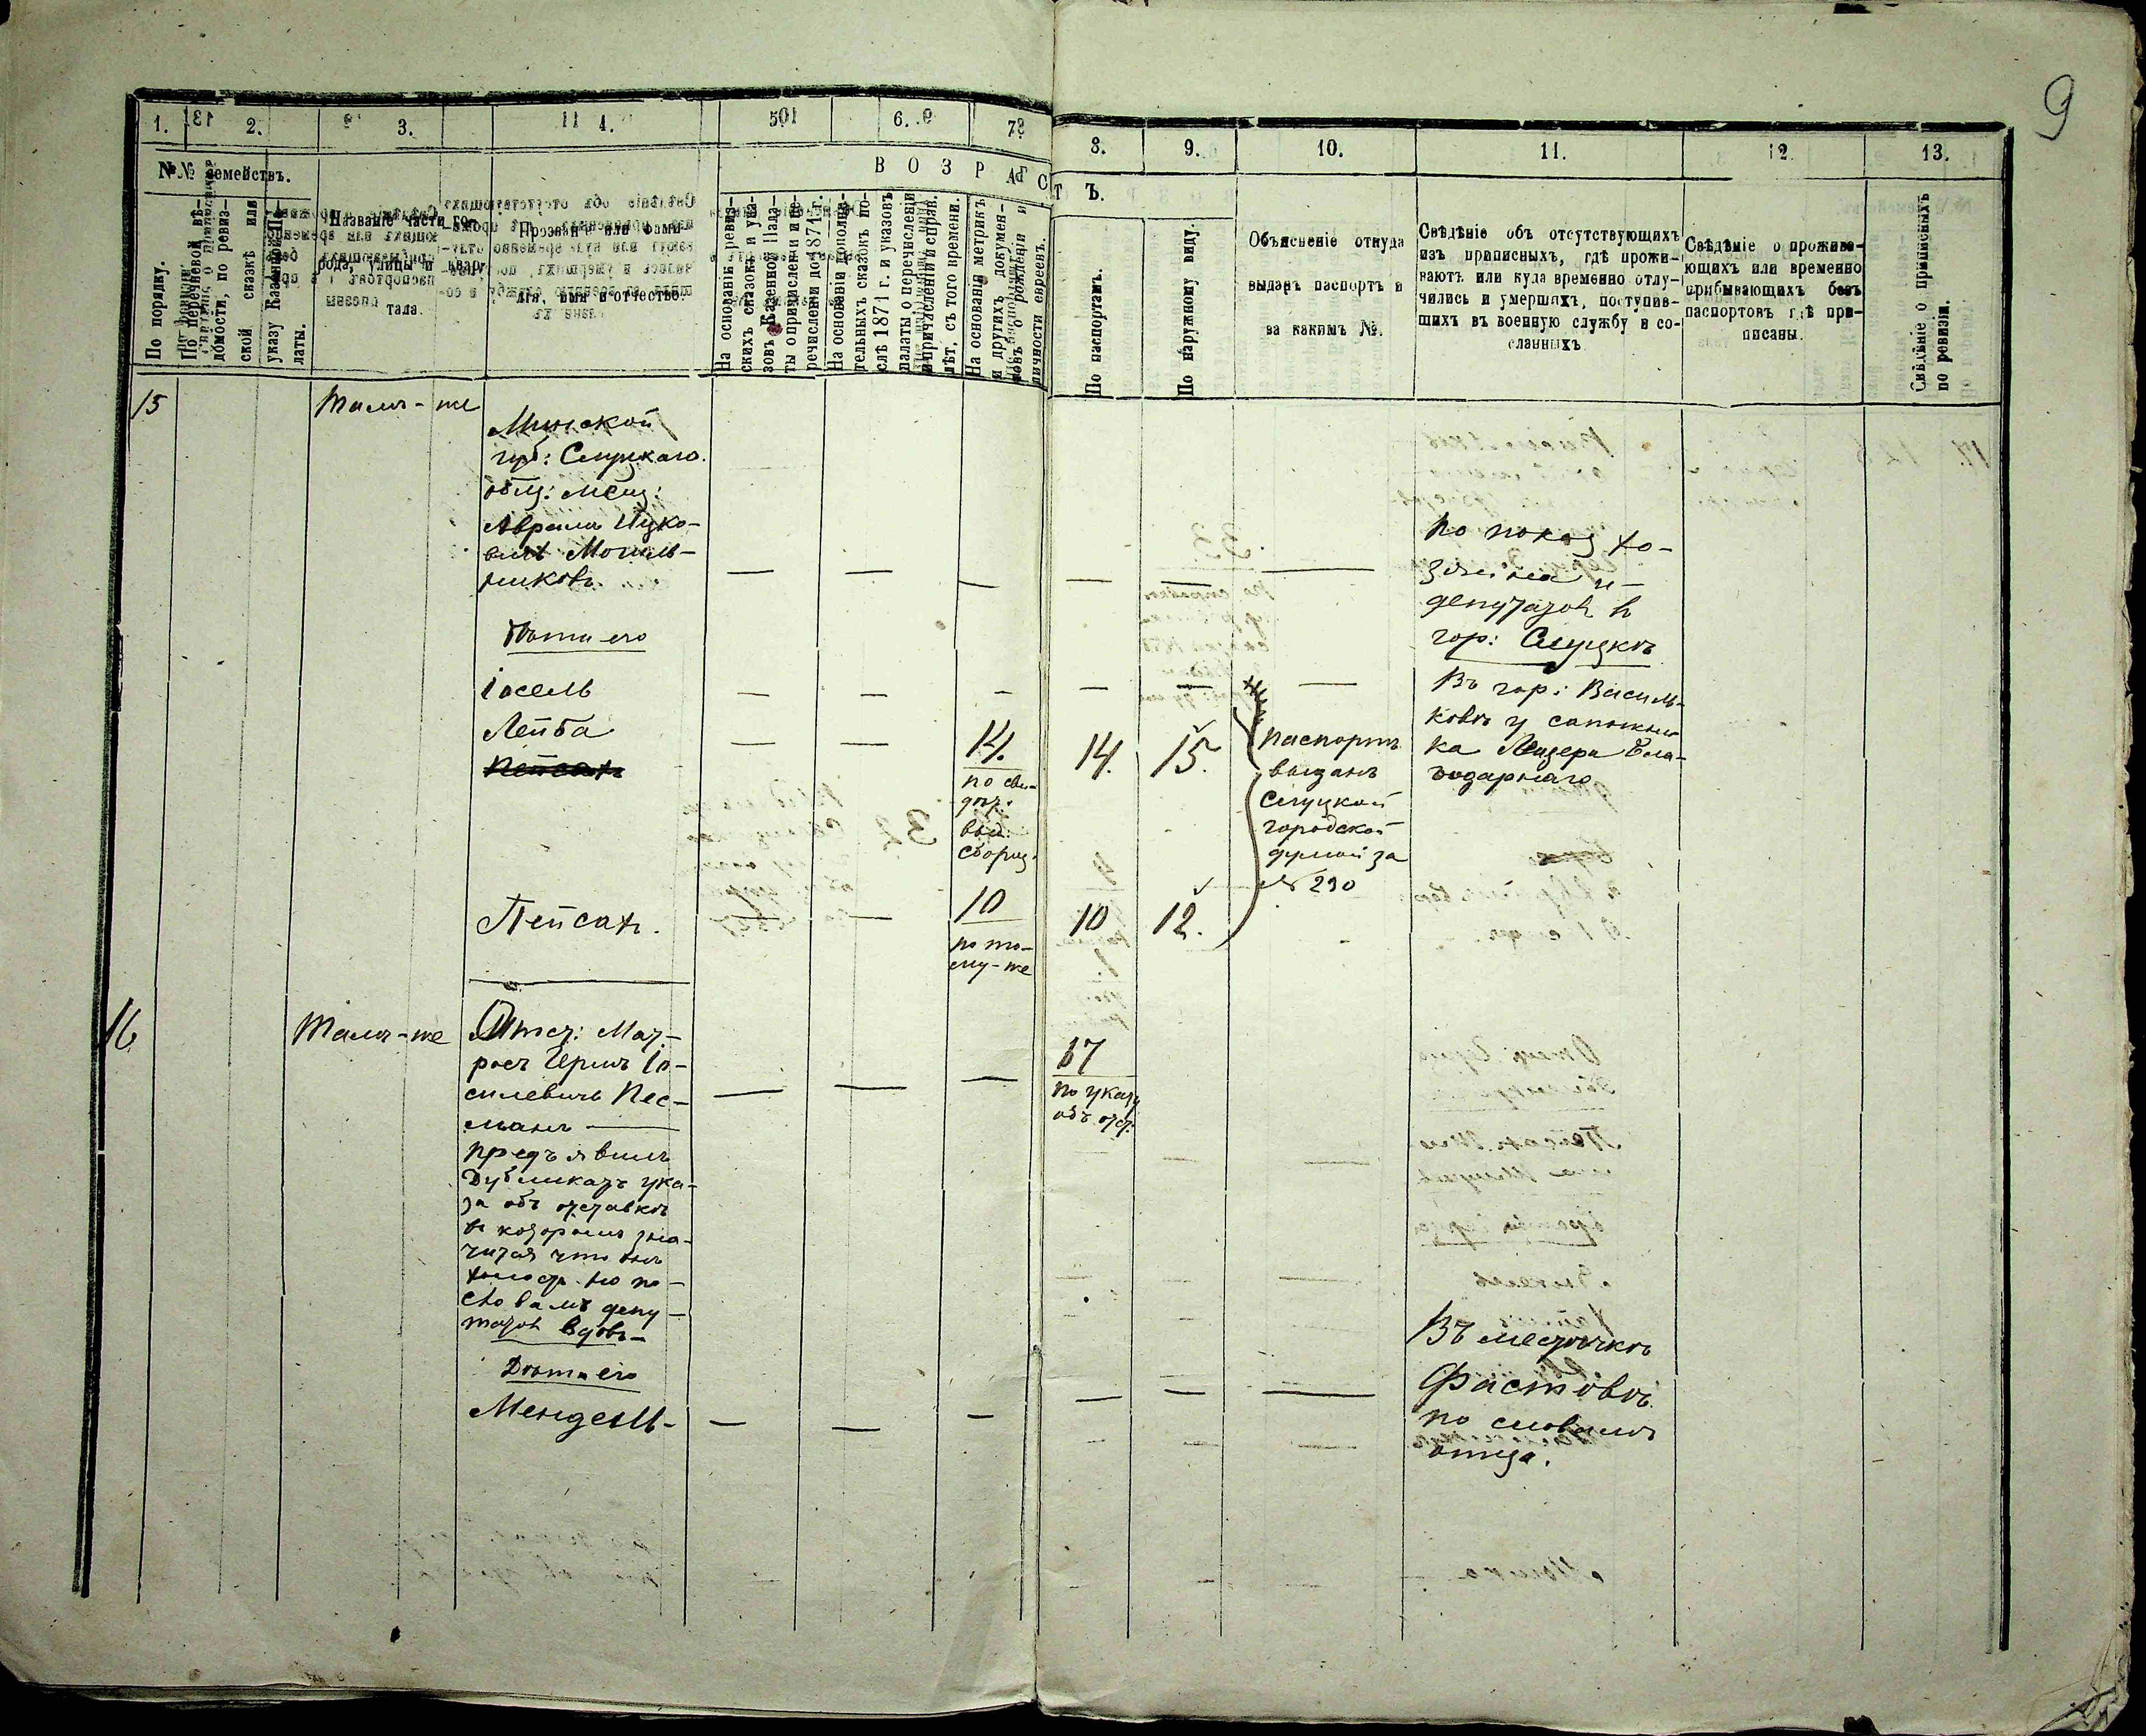 9
1. 2. 3. 4. 5 6. 7 8. 9. 10. 11. 12. 13.
№№ семействъ.
ВОЗРАСТЪ.
По порядку.
По перечневой вѣ-
домости, по ревиз-
ской сказкѣ или
указу Казенной Па-
латы.
Названіе части го-
рода, улицы и квар-
тала.
Прозваніе или фами-
лія, имя и отчество.
На основаніи ревиз-
скихъ сказокъ и ука-
зовъ Казенной Пала-
ты о причисленіи и пе-
речисленіи до 1871 г.
На основаніи дополни-
тельныхъ сказокъ по-
слѣ 1871 г. и указовъ
палаты о перечисленіи
и причисленіи и справ.
лѣт. съ того времени.
На основаніи метрикъ
и другихъ докумен-
товъ о рожденіи и
личности евреевъ.
По паспортамъ.
По наружному виду.
Объясненіе откуда
выданъ паспортъ и
за какимъ №.
Свѣдѣніе объ отсутствующихъ
изъ приписныхъ, гдѣ прожи-
ваютъ или куда временно отлу-
чились и умершихъ, поступив-
шихъ въ военную службу и со-
сланныхъ
Свѣдѣніе о прожива-
ющихъ или временно
прибывающихъ безъ
паспортовъ гдѣ при-
писаны.
Свѣдѣніе о приписныхъ
по ревизіи.
15
Тамъ-же
Минской
губ: Слуцкаго
общ: мещ:
Аврамъ Ицко-
вичъ Могиль-
никовъ
Дѣти его
Іосель
Лейба
Пейсахъ
14.
по сви-
дѣт:
выд:
сборщ:
14. 15.
Пейсахъ.
10
по то-
му-же
10 12.
паспортъ
выданъ
Слуцкой
городской
думой за
№ 290
по показ хо-
зяина и
депутатов в
гор: Слуцкѣ
Въ гор: Василь-
ковѣ у сапожни-
ка Лейзера Бла-
годарнаго
16
Тамъ-же
Отст: Мат-
росъ Гершъ Іо-
силевичъ Пес-
манъ
предъявилъ
Дубликатъ ука-
за объ отставкѣ
в которомъ зна-
чится что онъ
холостъ. но по
словамъ депу-
татов вдовъ
Дѣти его
Мендель
67
по указу
объ отст.
Въ местечкѣ
Фастовѣ
по словамъ
отца.